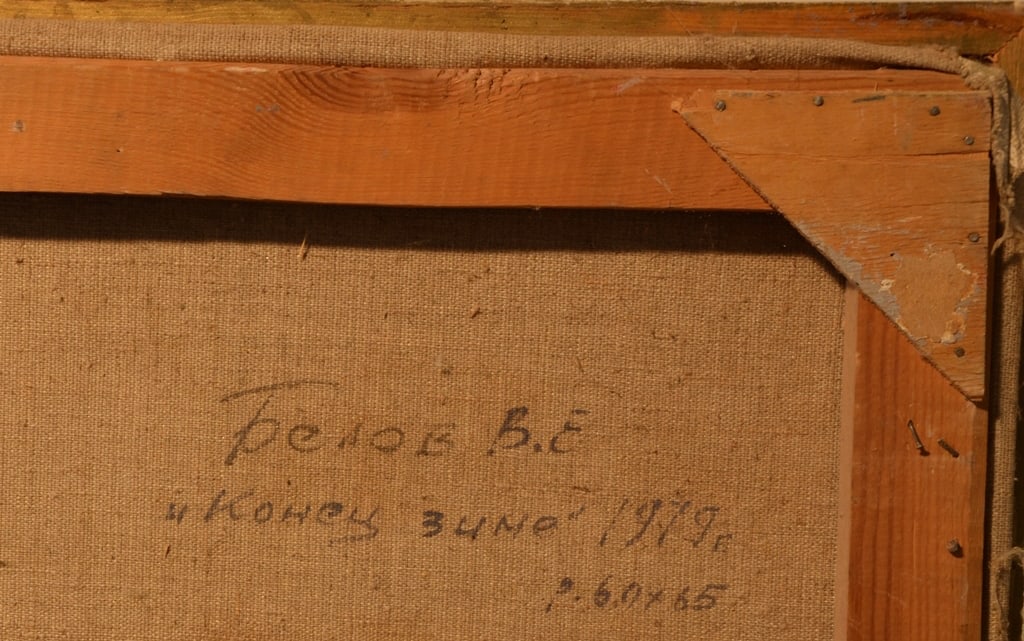 Белов В.Е
"Конец зимы" 1979г
р. 60х65